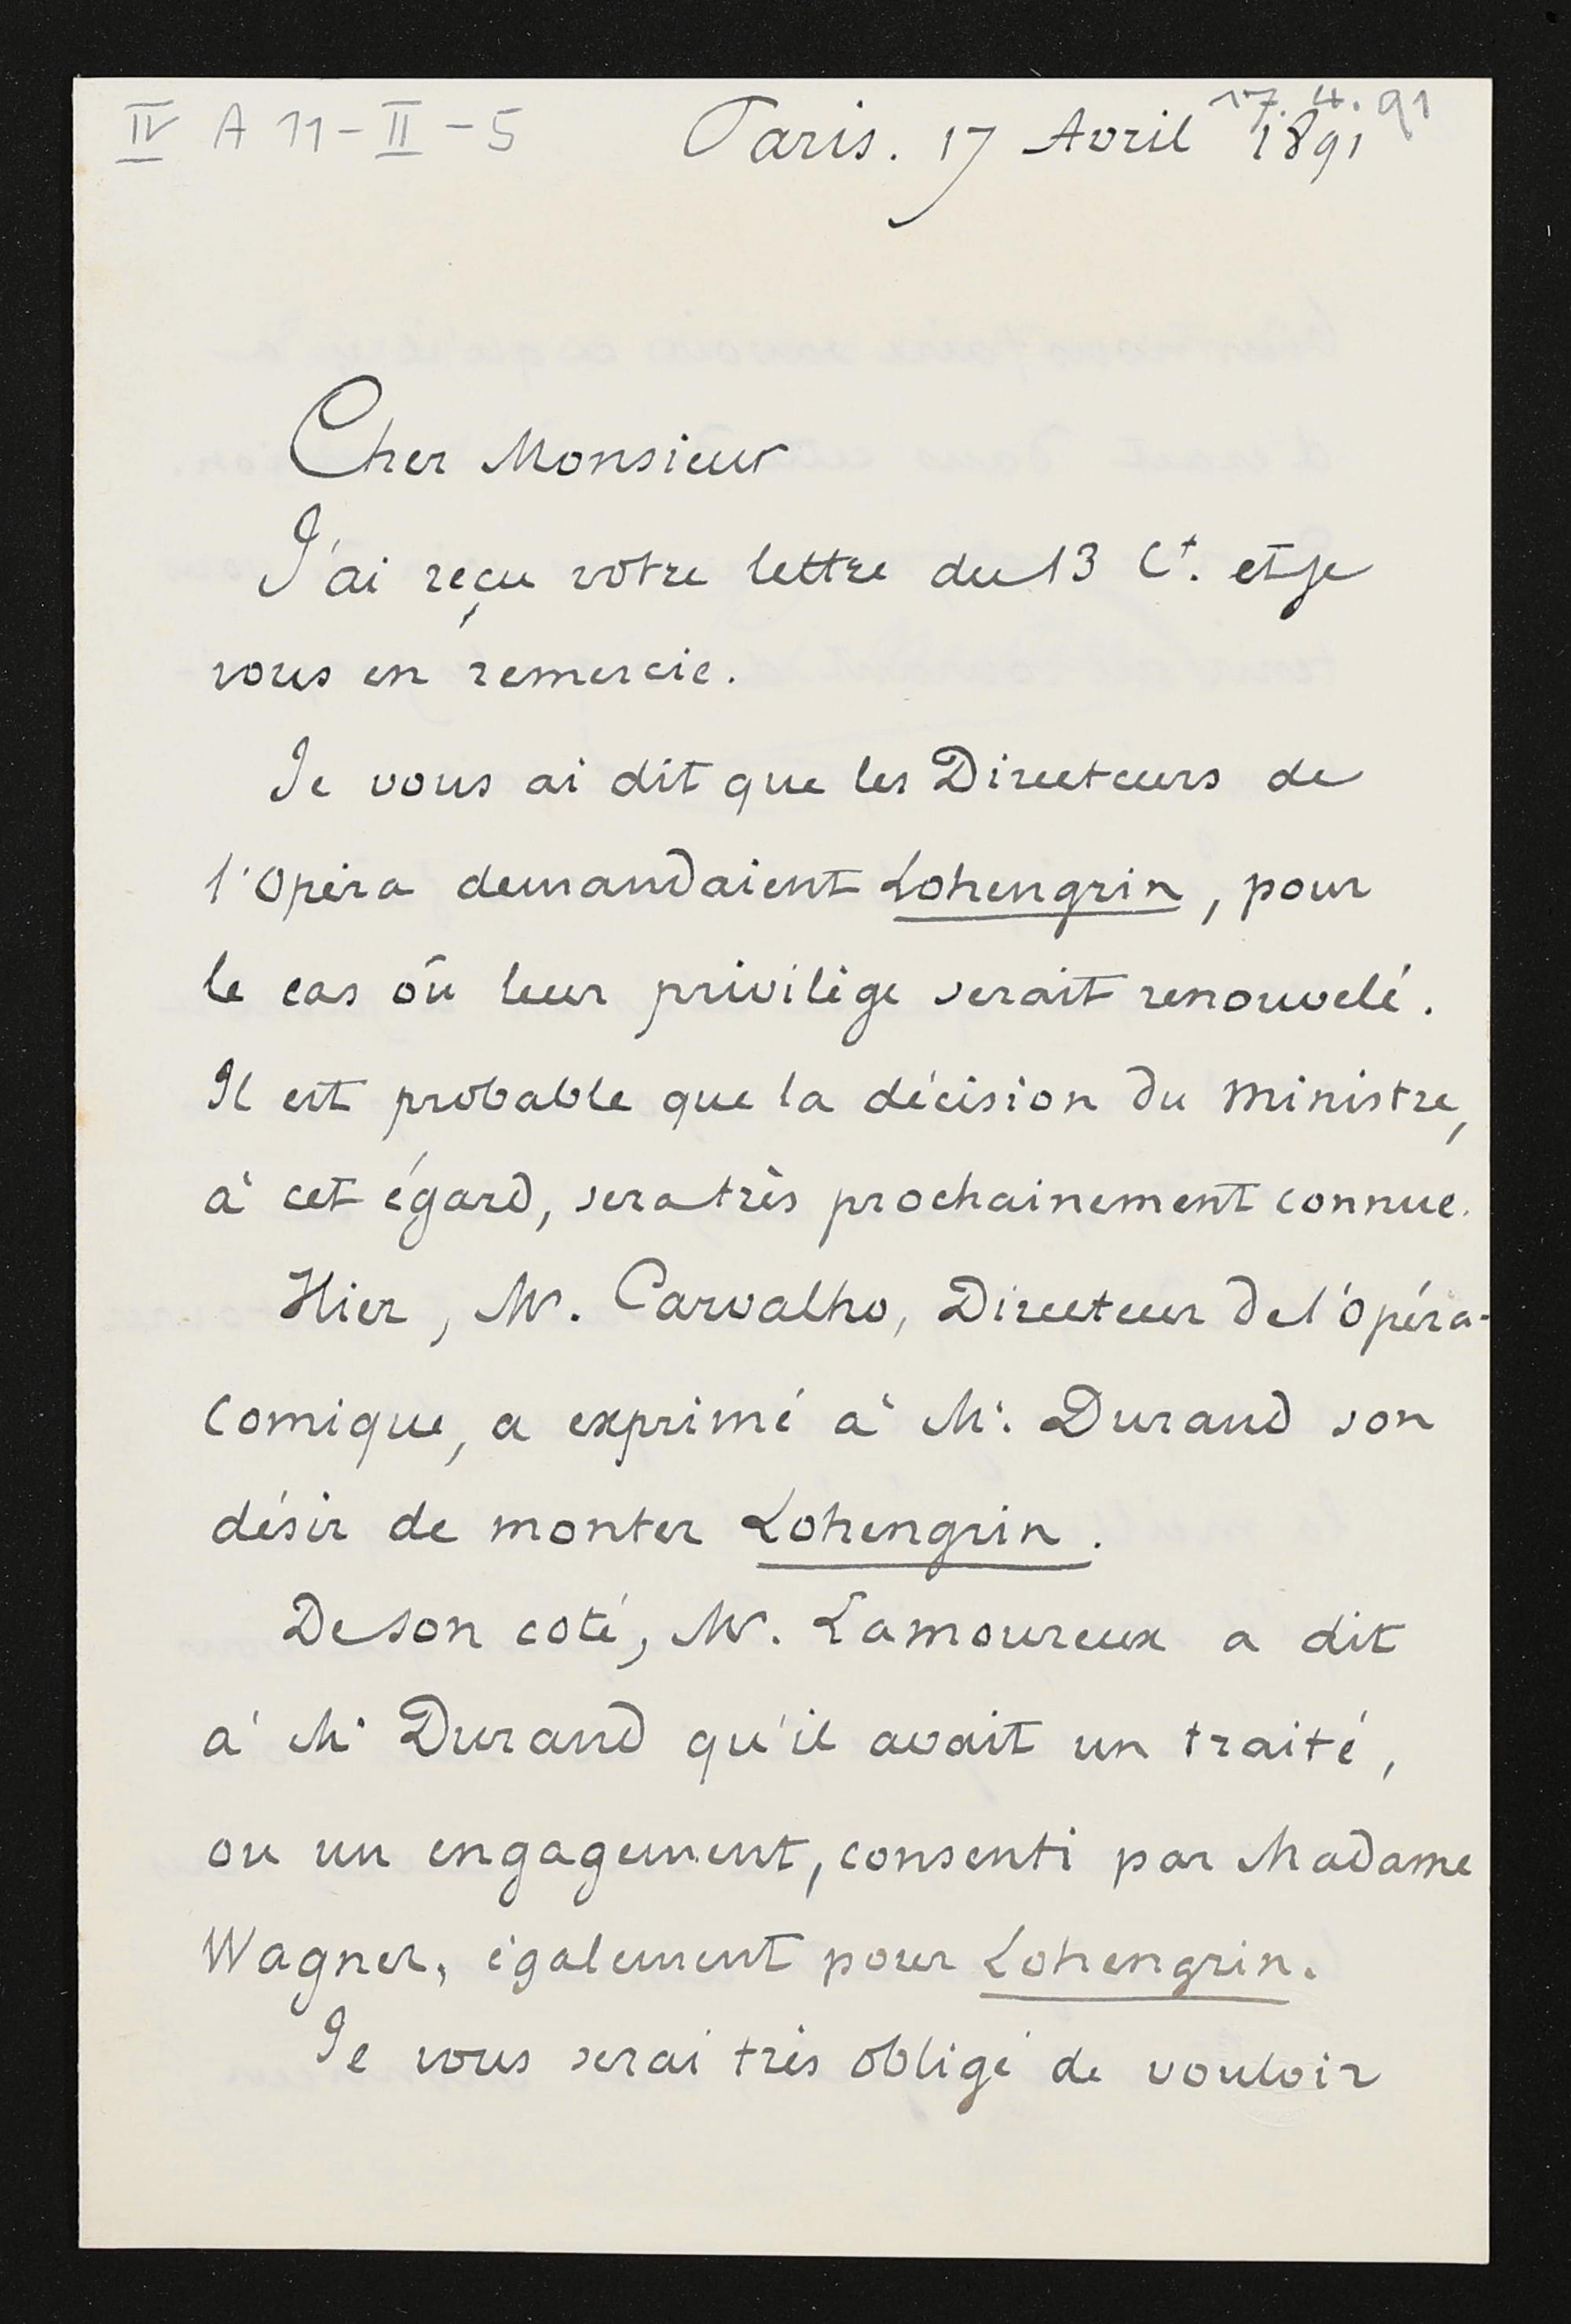 IV A 11-II-5
17.4.91
Paris. 17 Avril 1891
Cher Monsieur
J'ai reçu votre lettre du 13 Ct. et je
vous en remercie.
Je vous ai dit que les Directeurs de
l'Opéra demandaient Lohengrin, pour
le cas où leur privilège serait renouvelé.
Il est probable que la décision du Ministre,
à cet égard, sera très prochainement connue.
Hier, Mr. Carvalho, Directeur de l'Opéra-
Comique, a exprimé à Mr. Durand son
désir de monter Lohengrin.
De son coté, Mr. Lamoureux a dit
à Mr Durand qu'il avait un traité,
ou un engagement, consenti par Madame
Wagner, également pour Lohengrin.
Je vous serai très obligé de vouloir